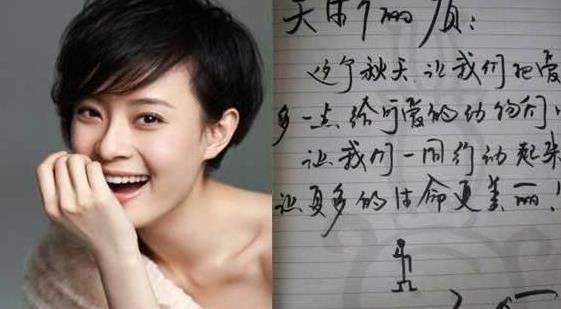 这个秋天 让我们把爱
多一点给可爱的动物们
让我们一同行动起来
让更多的生命更美丽!